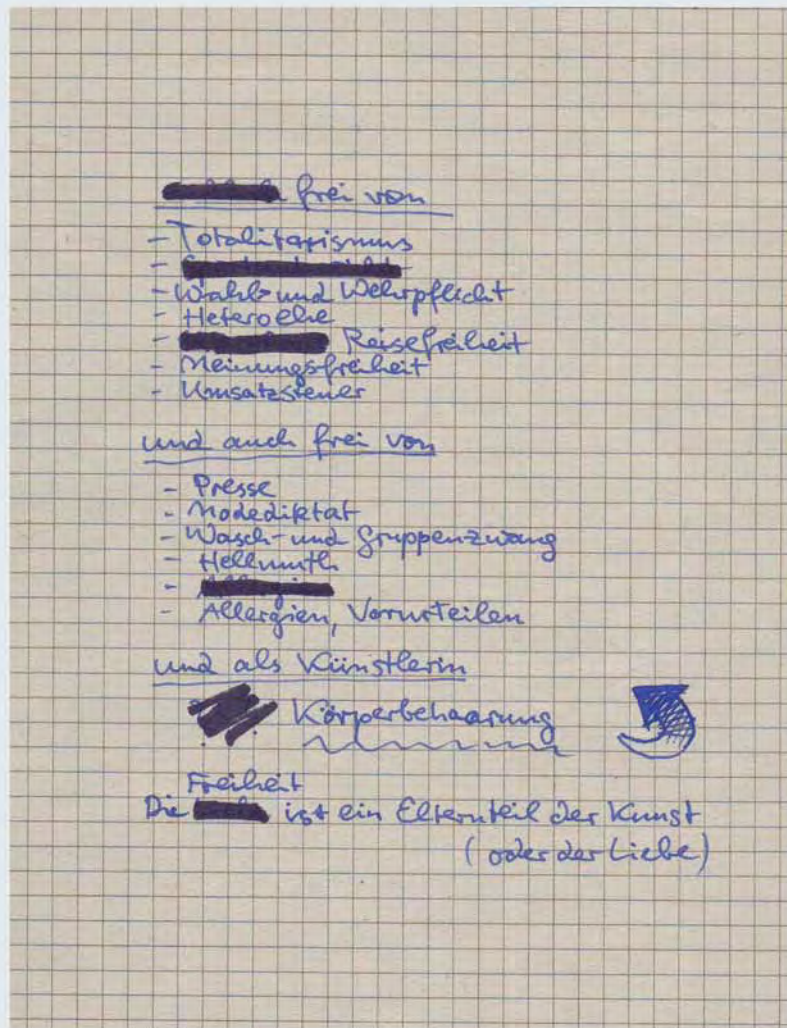 frei von
- Totalitarismus
-
- Wahl- und Wehrpflicht
- Heteroehe
- Reisefreiheit
- Meinungsfreiheit
- Umsatzsteuer
und auch frei von
- Presse
- Modediktat
- Wasch- und Gruppenzwang
- Hellmuth
-
- Allergien, Vorurteilen
und als Künstlerin
Körperbehaarung
Freiheit
Die ist ein Elternteil der Kunst
(oder der Liebe)